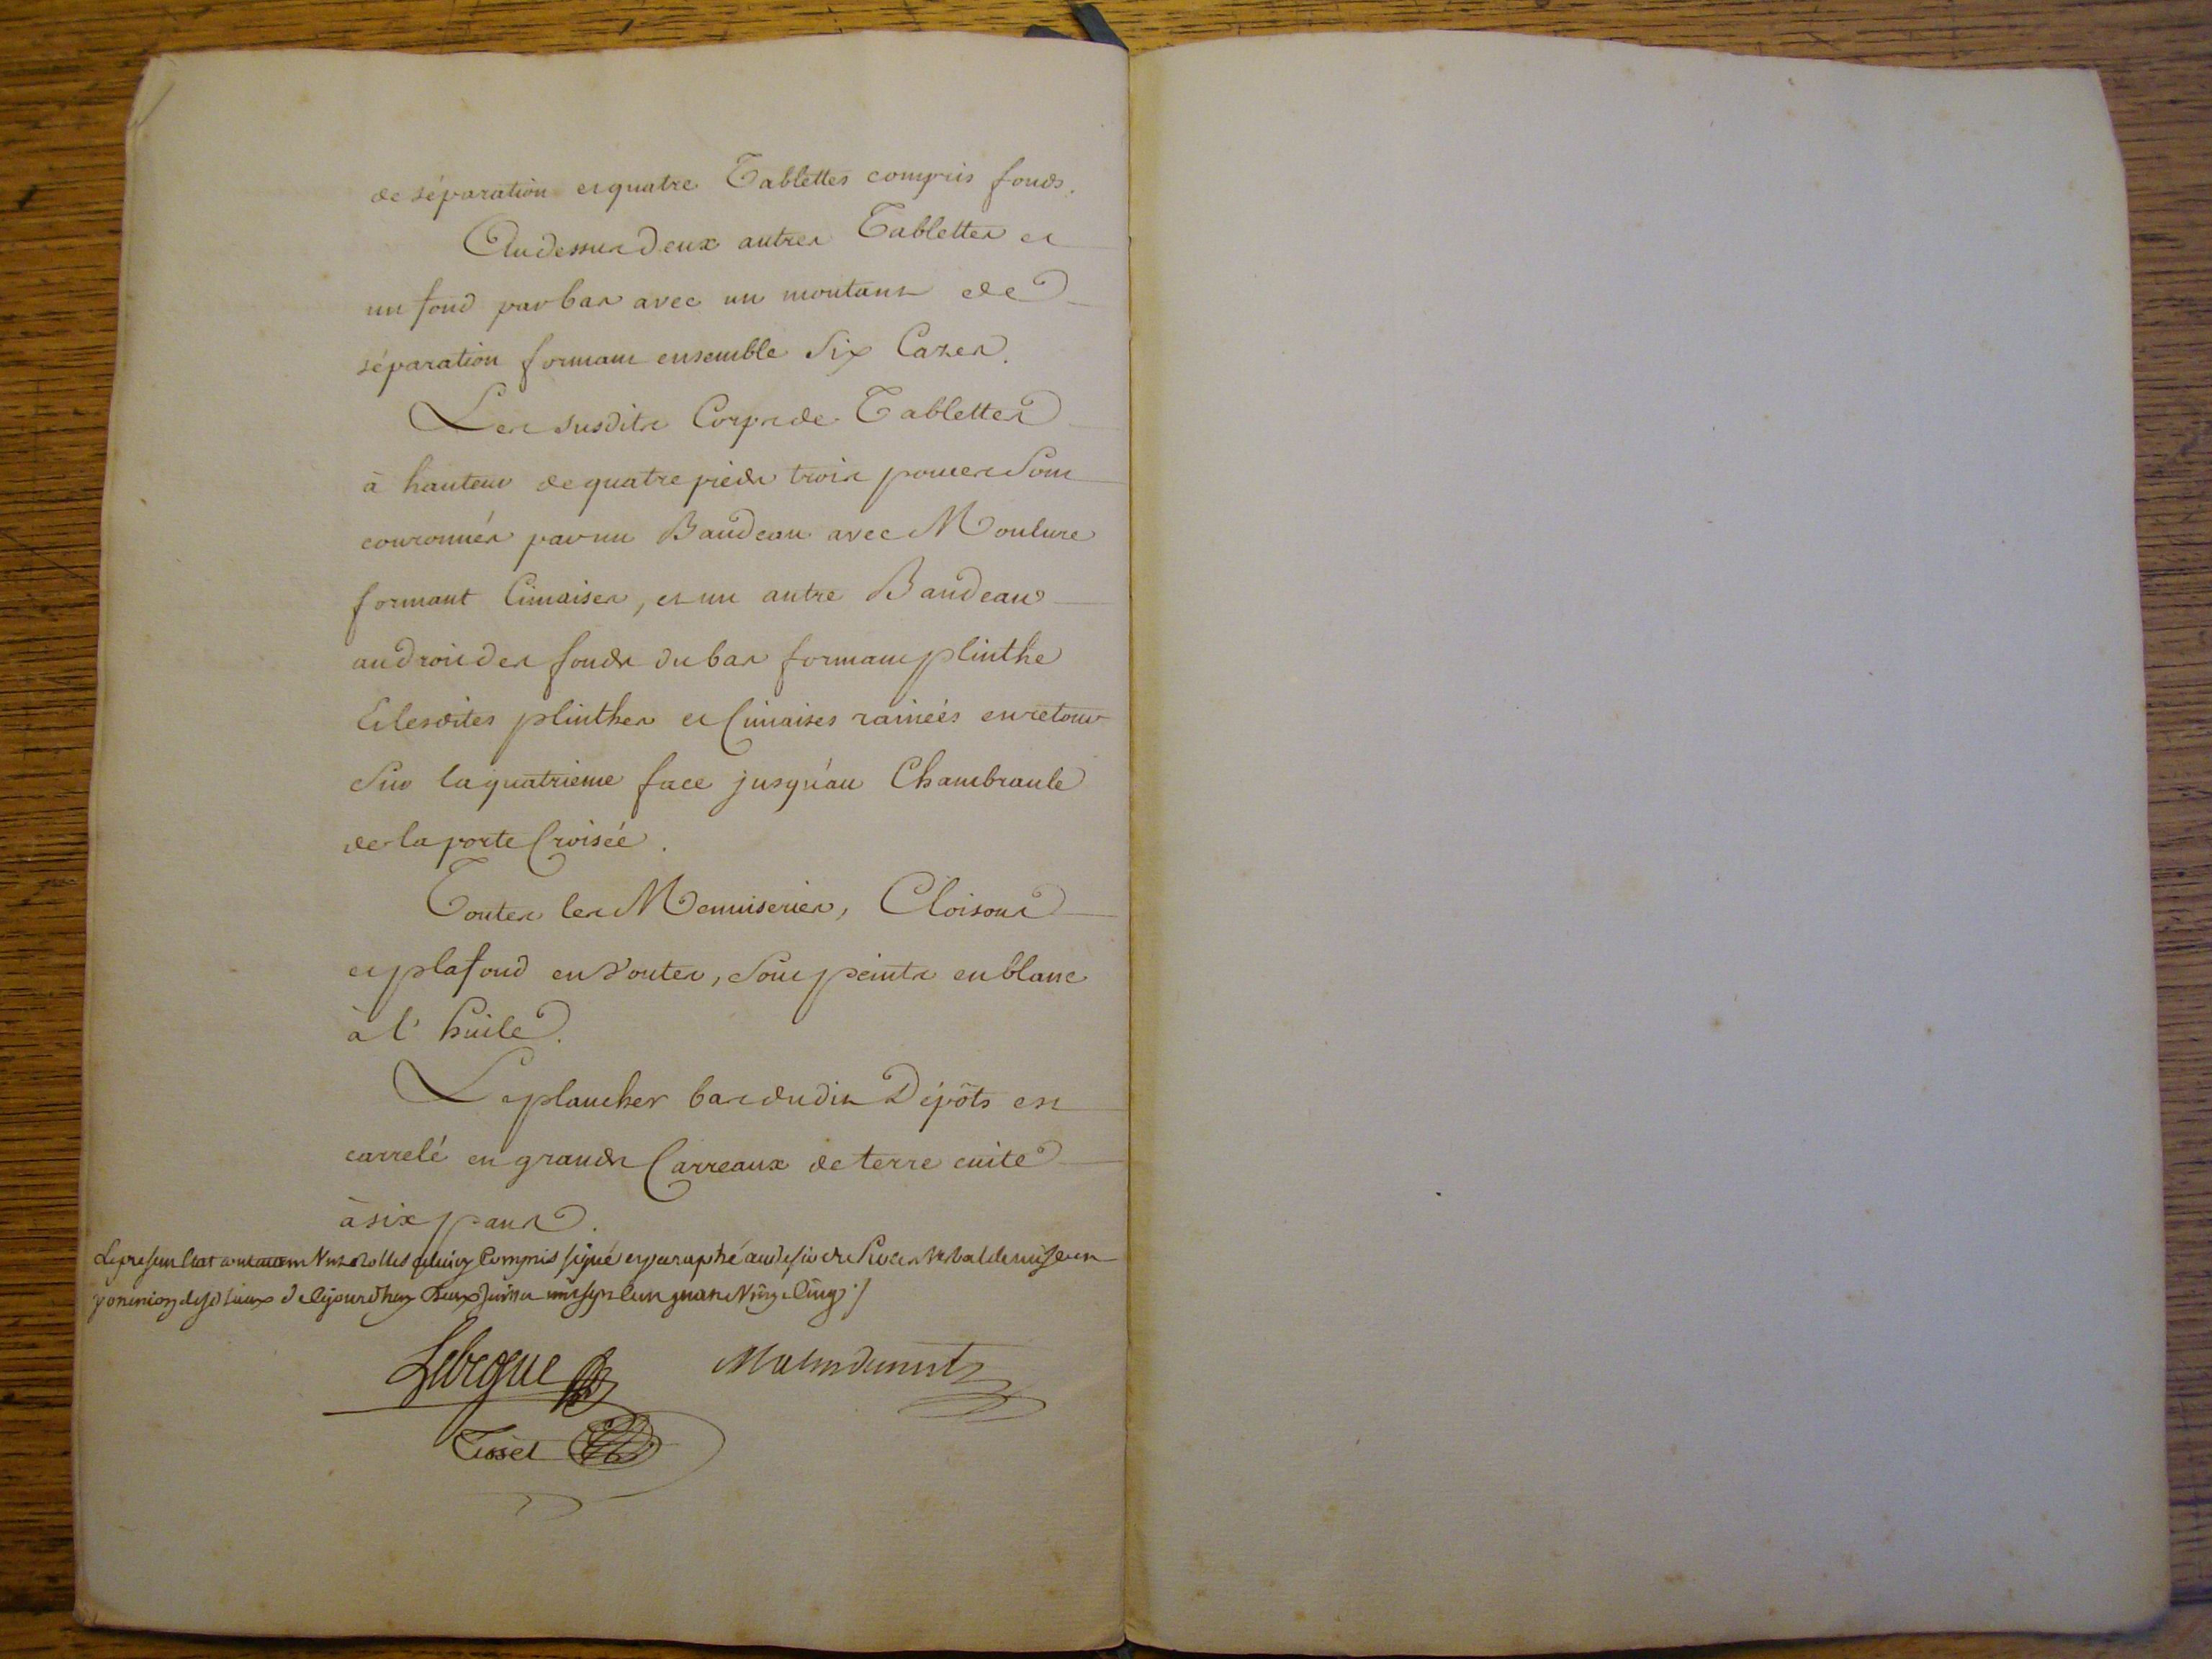 de séparation et quatre Tablettes compris fonds.
Audessus deux autres Tablettes et
un fond par bas avec un montant de
séparation formant ensemble Six Cazes.
Les susdits Corps de Tablettes
à hauteur de quatre pieds trois pouces Sont
couronnés par un Bandeau avec Moulure
formant Cimaises, et un autre Bandeau
au droit des fonds du bas formant plinthe
Et lesdites plinthes et Cimaises rainées en retour
Sur la quatrieme face jusqu'au Chambranle
de la porte Croisée.
Toutes les Menuiseries, Cloisons
et plafond en Soutes, Sont peints en blanc
à l'huile.
Le plancher bas dudit Dépôts est
carrelé en grands Carreaux de terre cuite
à six pans.
Le present Etat contenant Rolles Compris signé et paraphé au desir du Procès Verbal de mise en
possession desd Lieux de cejourdhuy Deux Juin mil sept cent quatre Vingt Cinq ./
Lebegue
Tisset